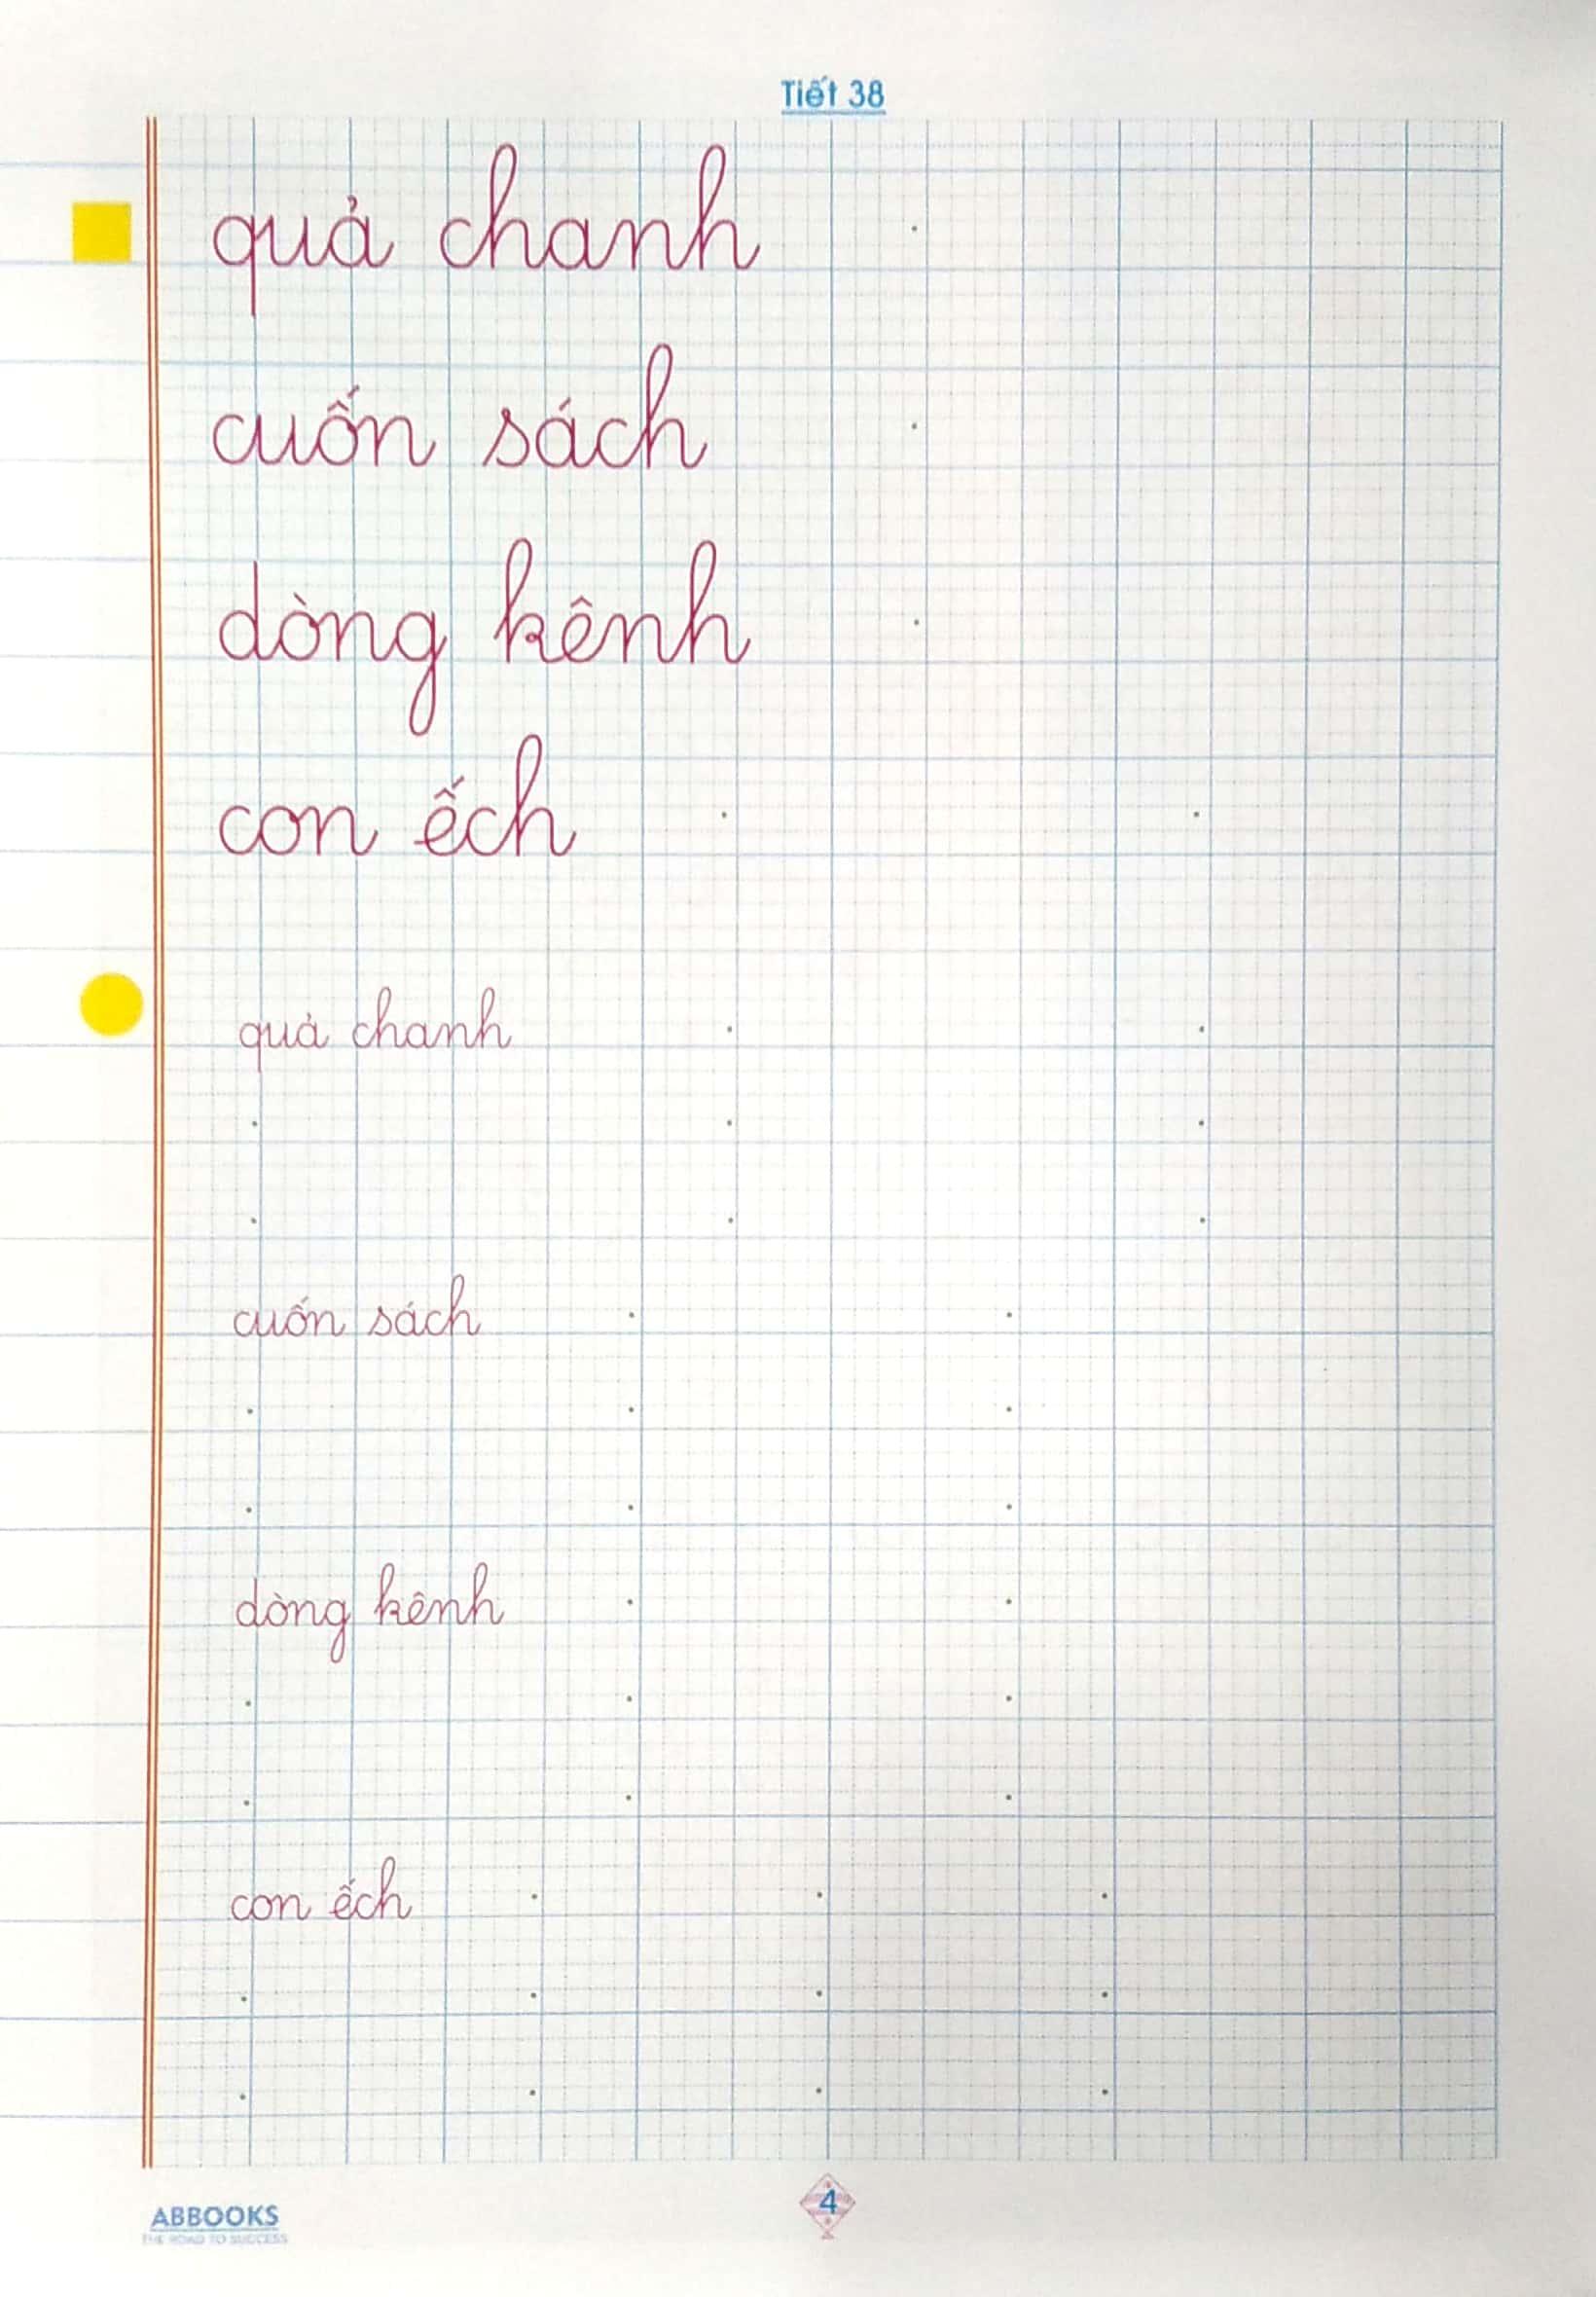 Tiết 38
quả chanh
cuốn sách
dòng kênh
con ếch
quả chanh
cuốn sách
dòng kênh
con ếch
4
ABBOOKS
THE ROAD TO SUCCESS